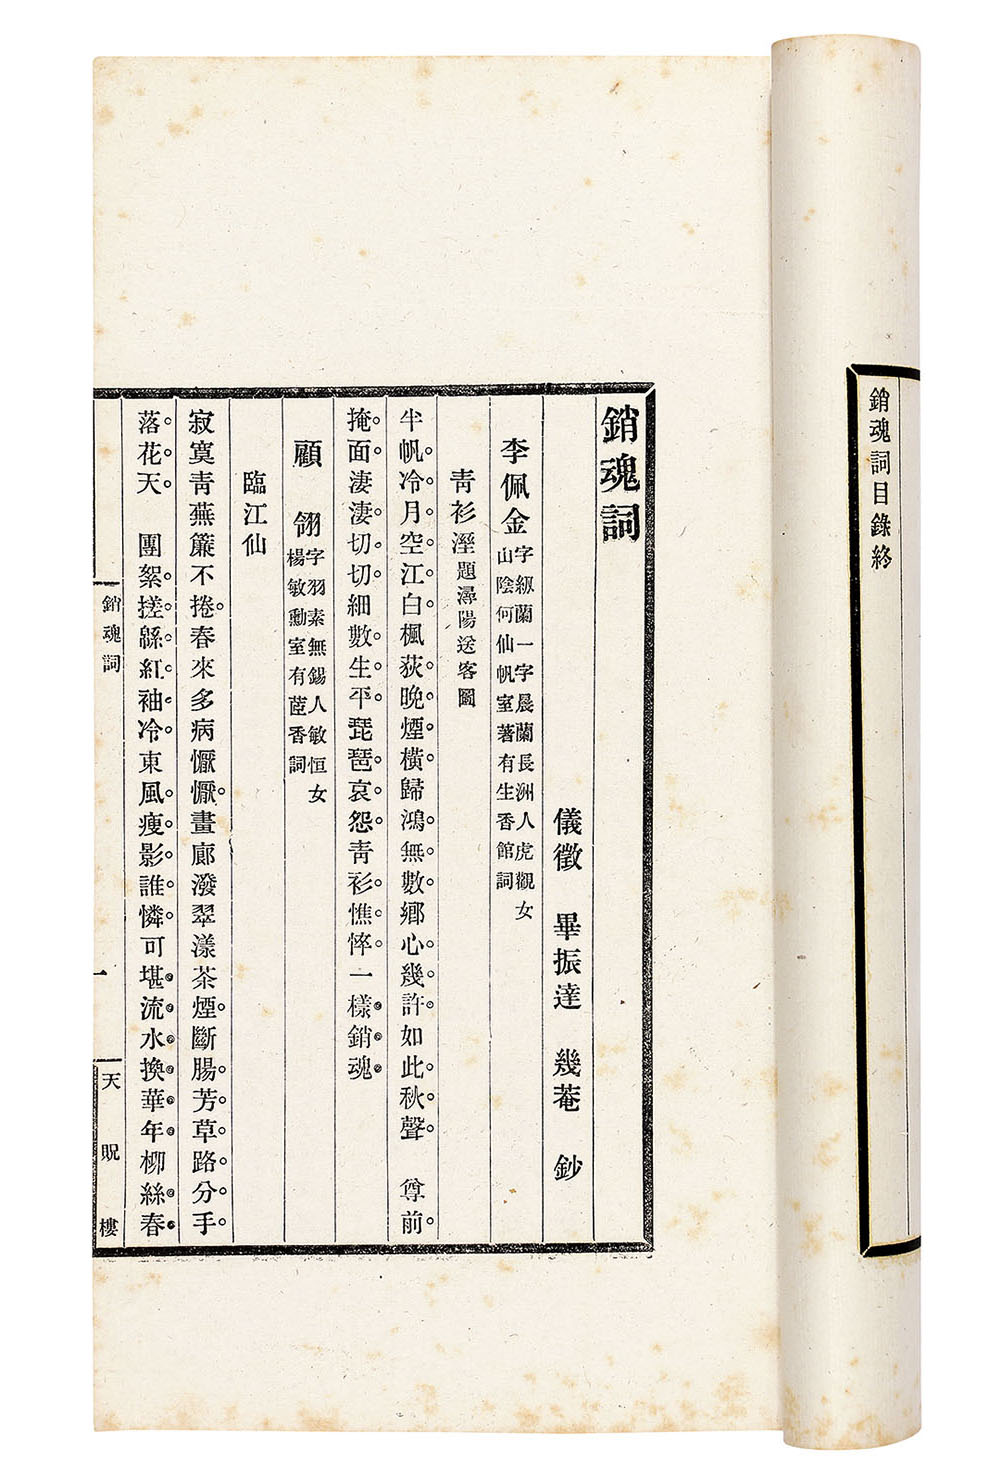 銷魂詞目錄終
銷魂詞
儀徵　畢振達　幾菴　鈔
李佩金字紉蘭一字晨蘭長洲人虎觀女
山陰何仙帆室著有生香館詞
青衫溼題潯陽送客圖
半帆冷月空江白楓荻晚煙橫歸鴻無數鄉心幾許如此秋聲　尊前
掩面淒淒切切細數生平琵琶哀怨青衫憔悴一樣銷魂
顧　翎字羽素無錫人敏恒女
楊敏勳室有茝香詞
臨江仙
寂寞青蕪簾不捲春來多病懨懨畫廊潑翠漾茶煙斷腸芳草路分手
落花天　團絮搓緜紅袖冷東風瘦影誰憐可堪流水換華年柳絲春
銷魂詞
一
天貺樓